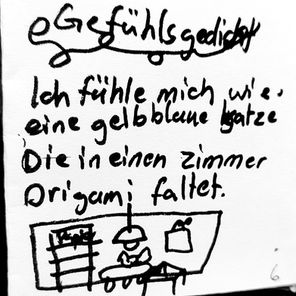 Gefühlsgedicht
Ich fühle mich wie
eine gelbblaue Katze
Die in einen Zimmer
Origami faltet.
6